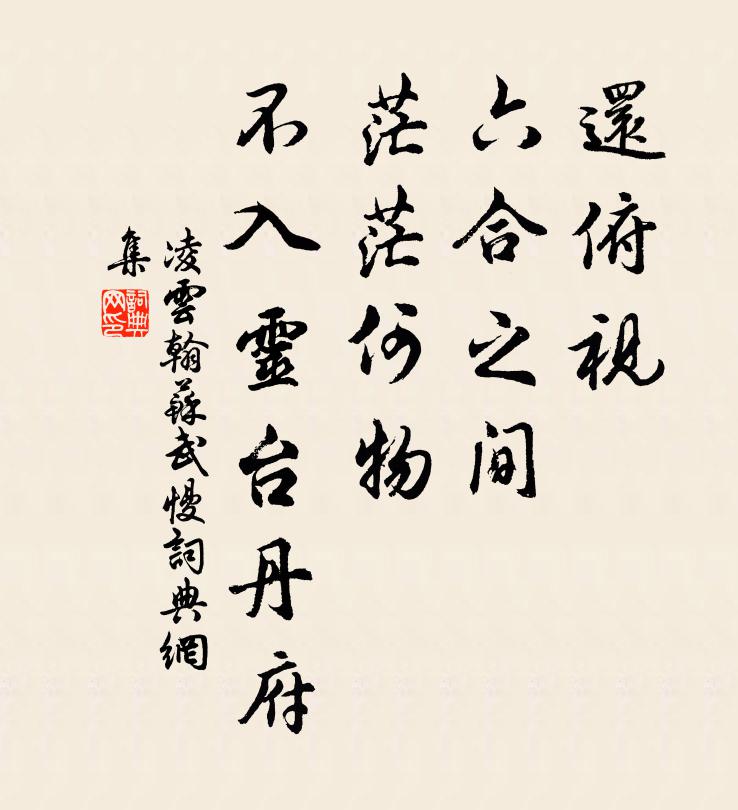 還俯視
六合之间
茫茫何物
不入靈台丹府
凌雲翰蘇武慢詞典網
集
詞典網印